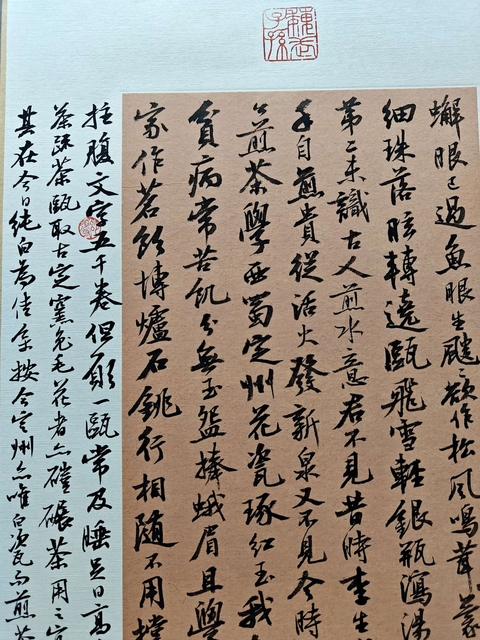 蠏眼已過魚眼生颼々欲作松風鳴茸蒙
細珠落眩轉遶甌飛雪輕銀瓶瀉湯
第二未識古人煎水意君不見昔時李生
手自煎貴從活火發新泉又不見今時
公煎茶學西蜀定州花瓷琢紅玉我
貧病常苦飢分無玉盌捧蛾眉且學
家作茗飲塼爐石銚行相隨不用撐
拄腹文字五千卷但願一甌常及睡足日高
茶疏茶甌取古定窯兔毛花者亦碾茶用之宜
其在今日純白為佳余按今定州亦唯白瓷而煎茶